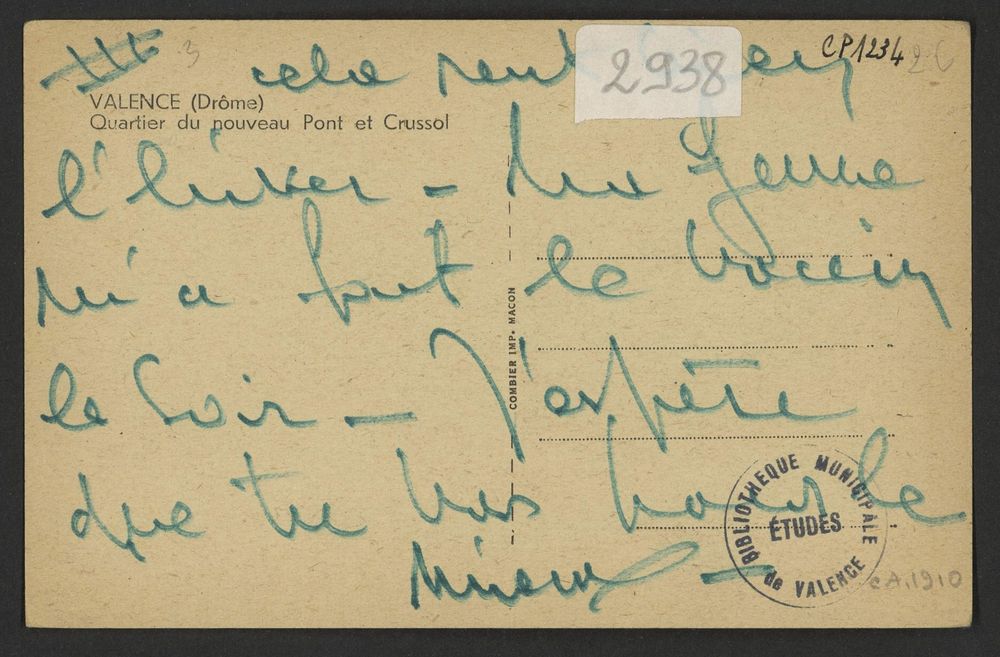 III 3 cela peut CP1234
2938
VALENCE (Drôme)
Quartier du nouveau Pont et Crussol
l'hiver - Ma femme
m'a fait le
le Soir - J'espère
que tu vas pour le
Mieux -
COMBIER IMP. MACON
BIBLIOTHEQUE MUNICIPALE
ÉTUDES
de VALENCE
cA.1910